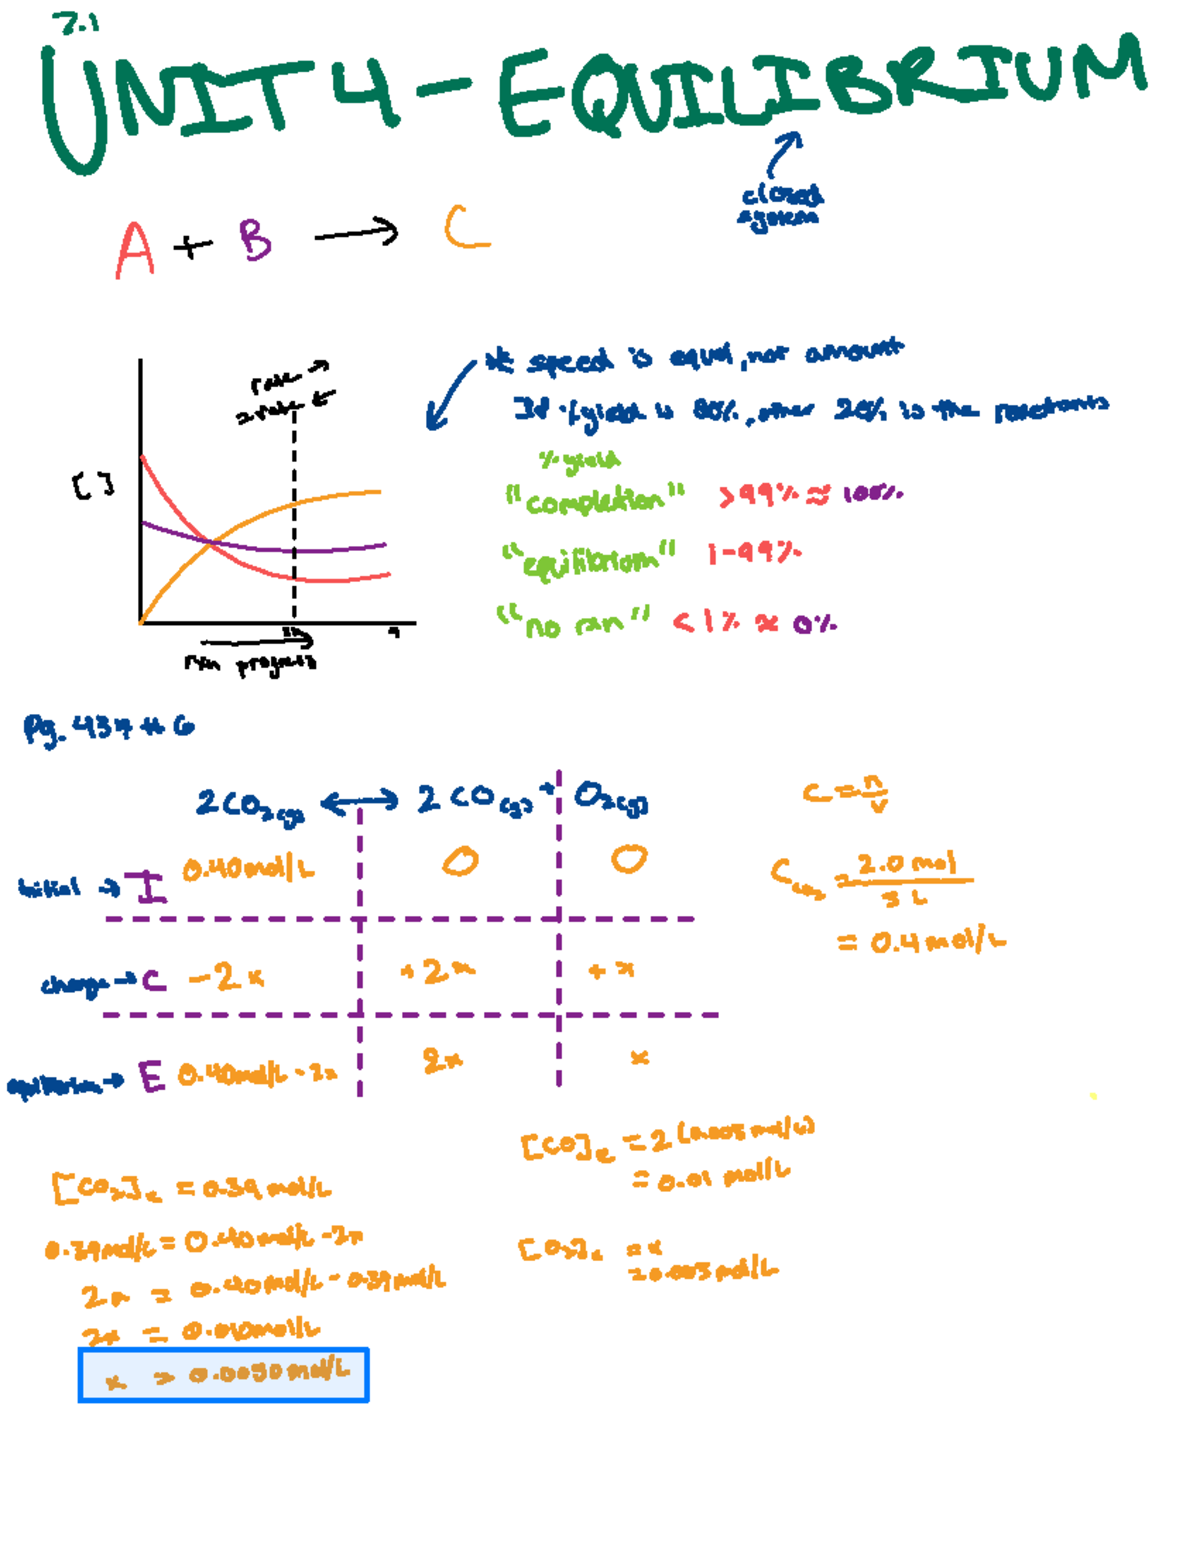 7.1
UNIT 4 - EQUILIBRIUM
closed
system
A + B → C
rate →
= rate ←
[ ]
rxn progress
* speed is equal, not amount
If % yield is 80%, other 20% is the reactants
% yield
"completion" >99% ≈ 100%
"equilibrium" 1-99%
"no rxn" <1% ≈ 0%
Pg. 437 # 6
2CO₂(g) ↔ 2CO(g) + O₂(g)
Initial → I 0.40 mol/L 0 0
change → C -2x +2x +x
equilibrium → E 0.40mol/L - 2x 2x x
C = n/v
C CO₂ = 2.0 mol / 5 L
= 0.4 mol/L
[CO₂]e = 0.39 mol/L
0.39mol/L = 0.40 mol/L - 2x
2x = 0.40 mol/L - 0.39 mol/L
2x = 0.010 mol/L
x = 0.0050 mol/L
[CO]e = 2(0.005 mol/L)
= 0.01 mol/L
[O₂]e = x
= 0.005 mol/L